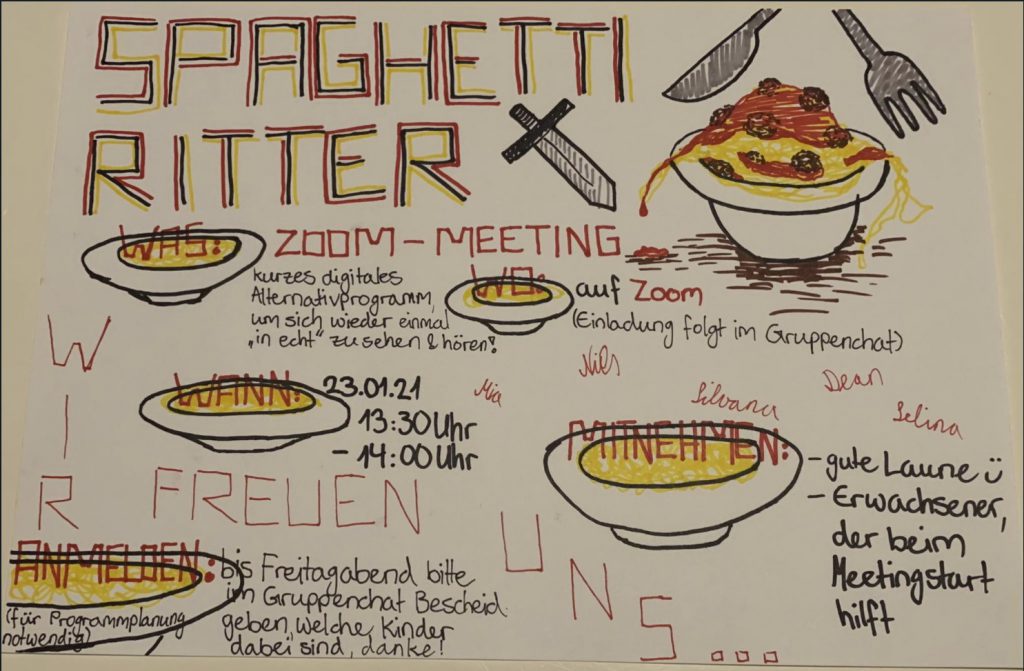 SPAGHETTI
RITTER
WAS: ZOOM-MEETING
kurzes digitales
Alternativprogramm,
um sich wieder einmal
„in echt" zu sehen & hören!
WO: auf Zoom
(Einladung folgt im Gruppenchat)
WANN: 23.01.21
13:30 Uhr
- 14:00 Uhr
Mia
Nils
Silvana
Dean
Selina
MITNEHMEN:
- gute Laune ü
- Erwachsener,
der beim
Meetingstart
hilft
WIR
FREUEN
UNS...
ANMELDEN:
(für Programmplanung
notwendig)
bis Freitagabend bitte
im Gruppenchat Bescheid
geben, welche Kinder
dabei sind, danke!